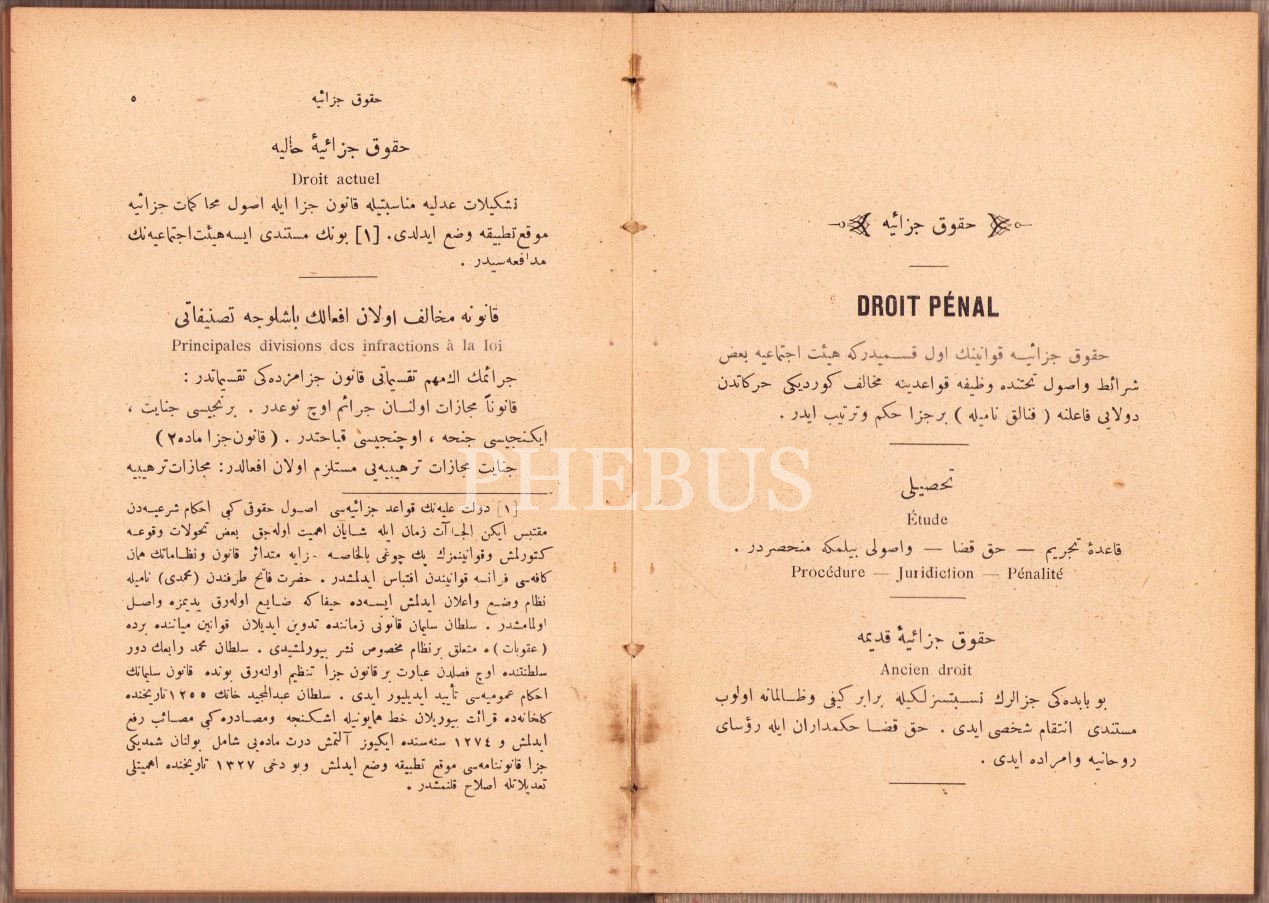 حقوق جزائیه
DROIT PÉNAL
حقوق جزائیـه قوانینك اول قسـمیدرکه هیئت اجتماعیه بعض
شرائط واصول تحتنده وظیفه قواعدینه مخالف کوردیکی حرکاتدن
دولایی فاعلنه ( فنالق نامیله ) برجزا حکم وترتیب ایدر .
تحصیلی
Étude
قاعدۀ تجریم — حق قضا — واصولی بیلمکه منحصردر .
Procédure — Juridiction — Pénalité
حقوق جزائیۀ قدیمه
Ancien droit
بو بابده‌کی جزالرك نسـبتسزلکیله برابر کیفی وظـالمانه اولوب
مستندی انتقام شخصی ایدی . حق قضـا حکمداران ایله رؤسای
روحانیه وامراده ایدی .
حقوق جزائیه ٥
حقوق جزائیۀ حالیه
Droit actuel
تشکیلات عدلیه مناسبتیله قانون جزا ایله اصول محاکمات جزائیه
موقع تطبیقه وضع ایدلدی. [١] بونك مستندی ایسه هیئت اجتماعیه‌نك
مدافعه‌سیدر .
قانونه مخالف اولان افعالك باشلوجه تصنیفاتی
Principales divisions des infractions à la loi
جرائمك اك مهم تقسیماتی قانون جزامزده‌کی تقسیماتدر :
قانوناً مجازات اولنـان جرائم اوچ نوعدر . برنجیسی جنایت ،
ایکنجیسی جنحه ، اوچنجیسی قباحتدر . ( قانون جزا ماده ٢ )
جنایت مجازات ترهیبیه‌یی مستلزم اولان افعالدر: مجازات ترهیبیه
[١] دولت علیه‌نك قواعد جزائیه‌سی اصـول حقوقی کبی احکام شرعیـه‌دن
مقتبس ایکن الجاآت زمان ایله شـایان اهمیت اوله‌جق بعض تحولات وقوعـه
کتورلمش وقوانینمزك پك چوغی بالخاصـه جزایه متدائر قانون ونظـاماتك همان
کافه‌سی فرانسه قوانیندن اقتباس ایدلمشدر . حضرت فاتح طرفندن (محمدی) نامیله
نظام وضـع واعلان ایدلمش ایسـه‌ده حیفا که ضـایع اوله‌رق یدیمزه واصـل
اولمامشدر . سلطان سلیمان قانونی زماننده تدوین ایدیلان قوانین میاننده برده
( عقوبات ) ه متعلق برنظام مخصوص نشر بیورلمشیدی . سلطان محمد رابعك دور
سلطنتنده اوچ فصلدن عبارت بر قانون جزا تنظیم اولنه‌رق بونده قانون سلیمانك
احکام عمومیه‌سی تأیید ایدیلیور ایدی . سلطان عبدالمجید خانك ١٢٥٥ تاریخنده
کلخانه‌ده قرائت بیوریلان خط همایونیله اشـکنجه ومصـادره کبی مصـائب رفع
ایدلمش و ١٢٧٤ سنه‌سنده ایکیوز آلتمش درت ماده‌یی شامل بولنان شمدیکی
جزا قانوننامه‌سی موقع تطبیقه وضع ایدلمش وبو دخی ١٣٢٧ تاریخنده اهمیتلی
تعدیلاتله اصلاح قلنمشدر .
PHEBUS